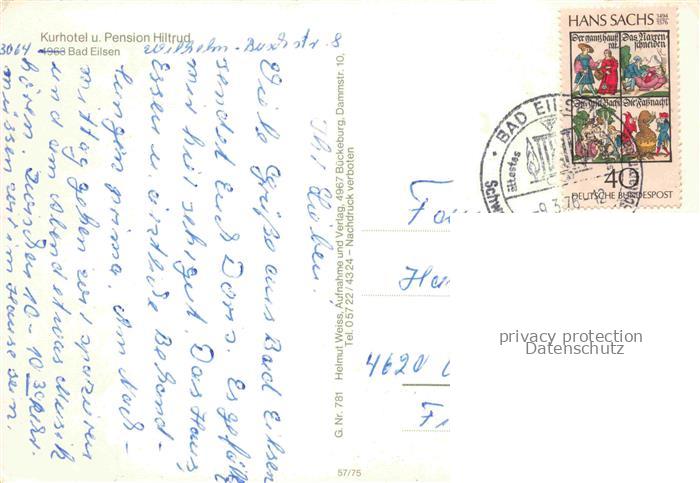 Kurhotel u. Pension Hiltrud
4963 Bad Eilsen
3064
Wilhelm-Busch str. 8
Ihr Lieben,
Viele Grüße aus Bad Eilsen
sendet Euch Doris. Es gefällt
mir hier sehr gut. Das Haus,
Essen u. ärztliche Behand-
lungen prima. Am Nach-
mittag gehen wir spazieren
und am Abend etwas Musik
hören. Zwischen 10 - 10 30 Uhr
müssen wir im Hause sein.
G. Nr. 781 Helmut Weiss, Aufnahme und Verlag, 4967 Bückeburg, Dammstr. 10,
Tel. 0 57 22 / 43 24 – Nachdruck verboten
57/75
HANS SACHS 1494 1576
Der gantz hauß rat. Das Narren schneiden
Die Faßnacht
40
DEUTSCHE BUNDESPOST
BAD EILSEN
ältestes
-9.3.76
4620
privacy protection
Datenschutz